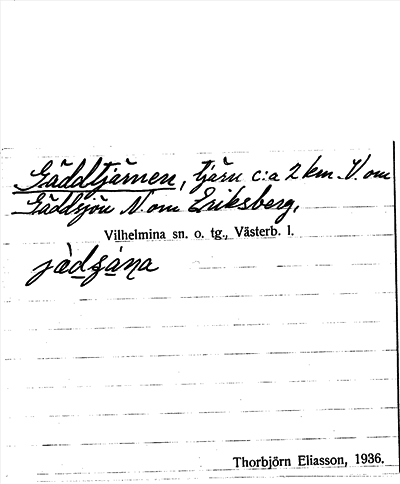 Gäddtjärnen, tjärn c:a 2 km V. om
Gäddsjön N. om Eriksberg.
Vilhelmina sn. o. tg., Västerb. l.
Thorbjörn Eliasson, 1936.